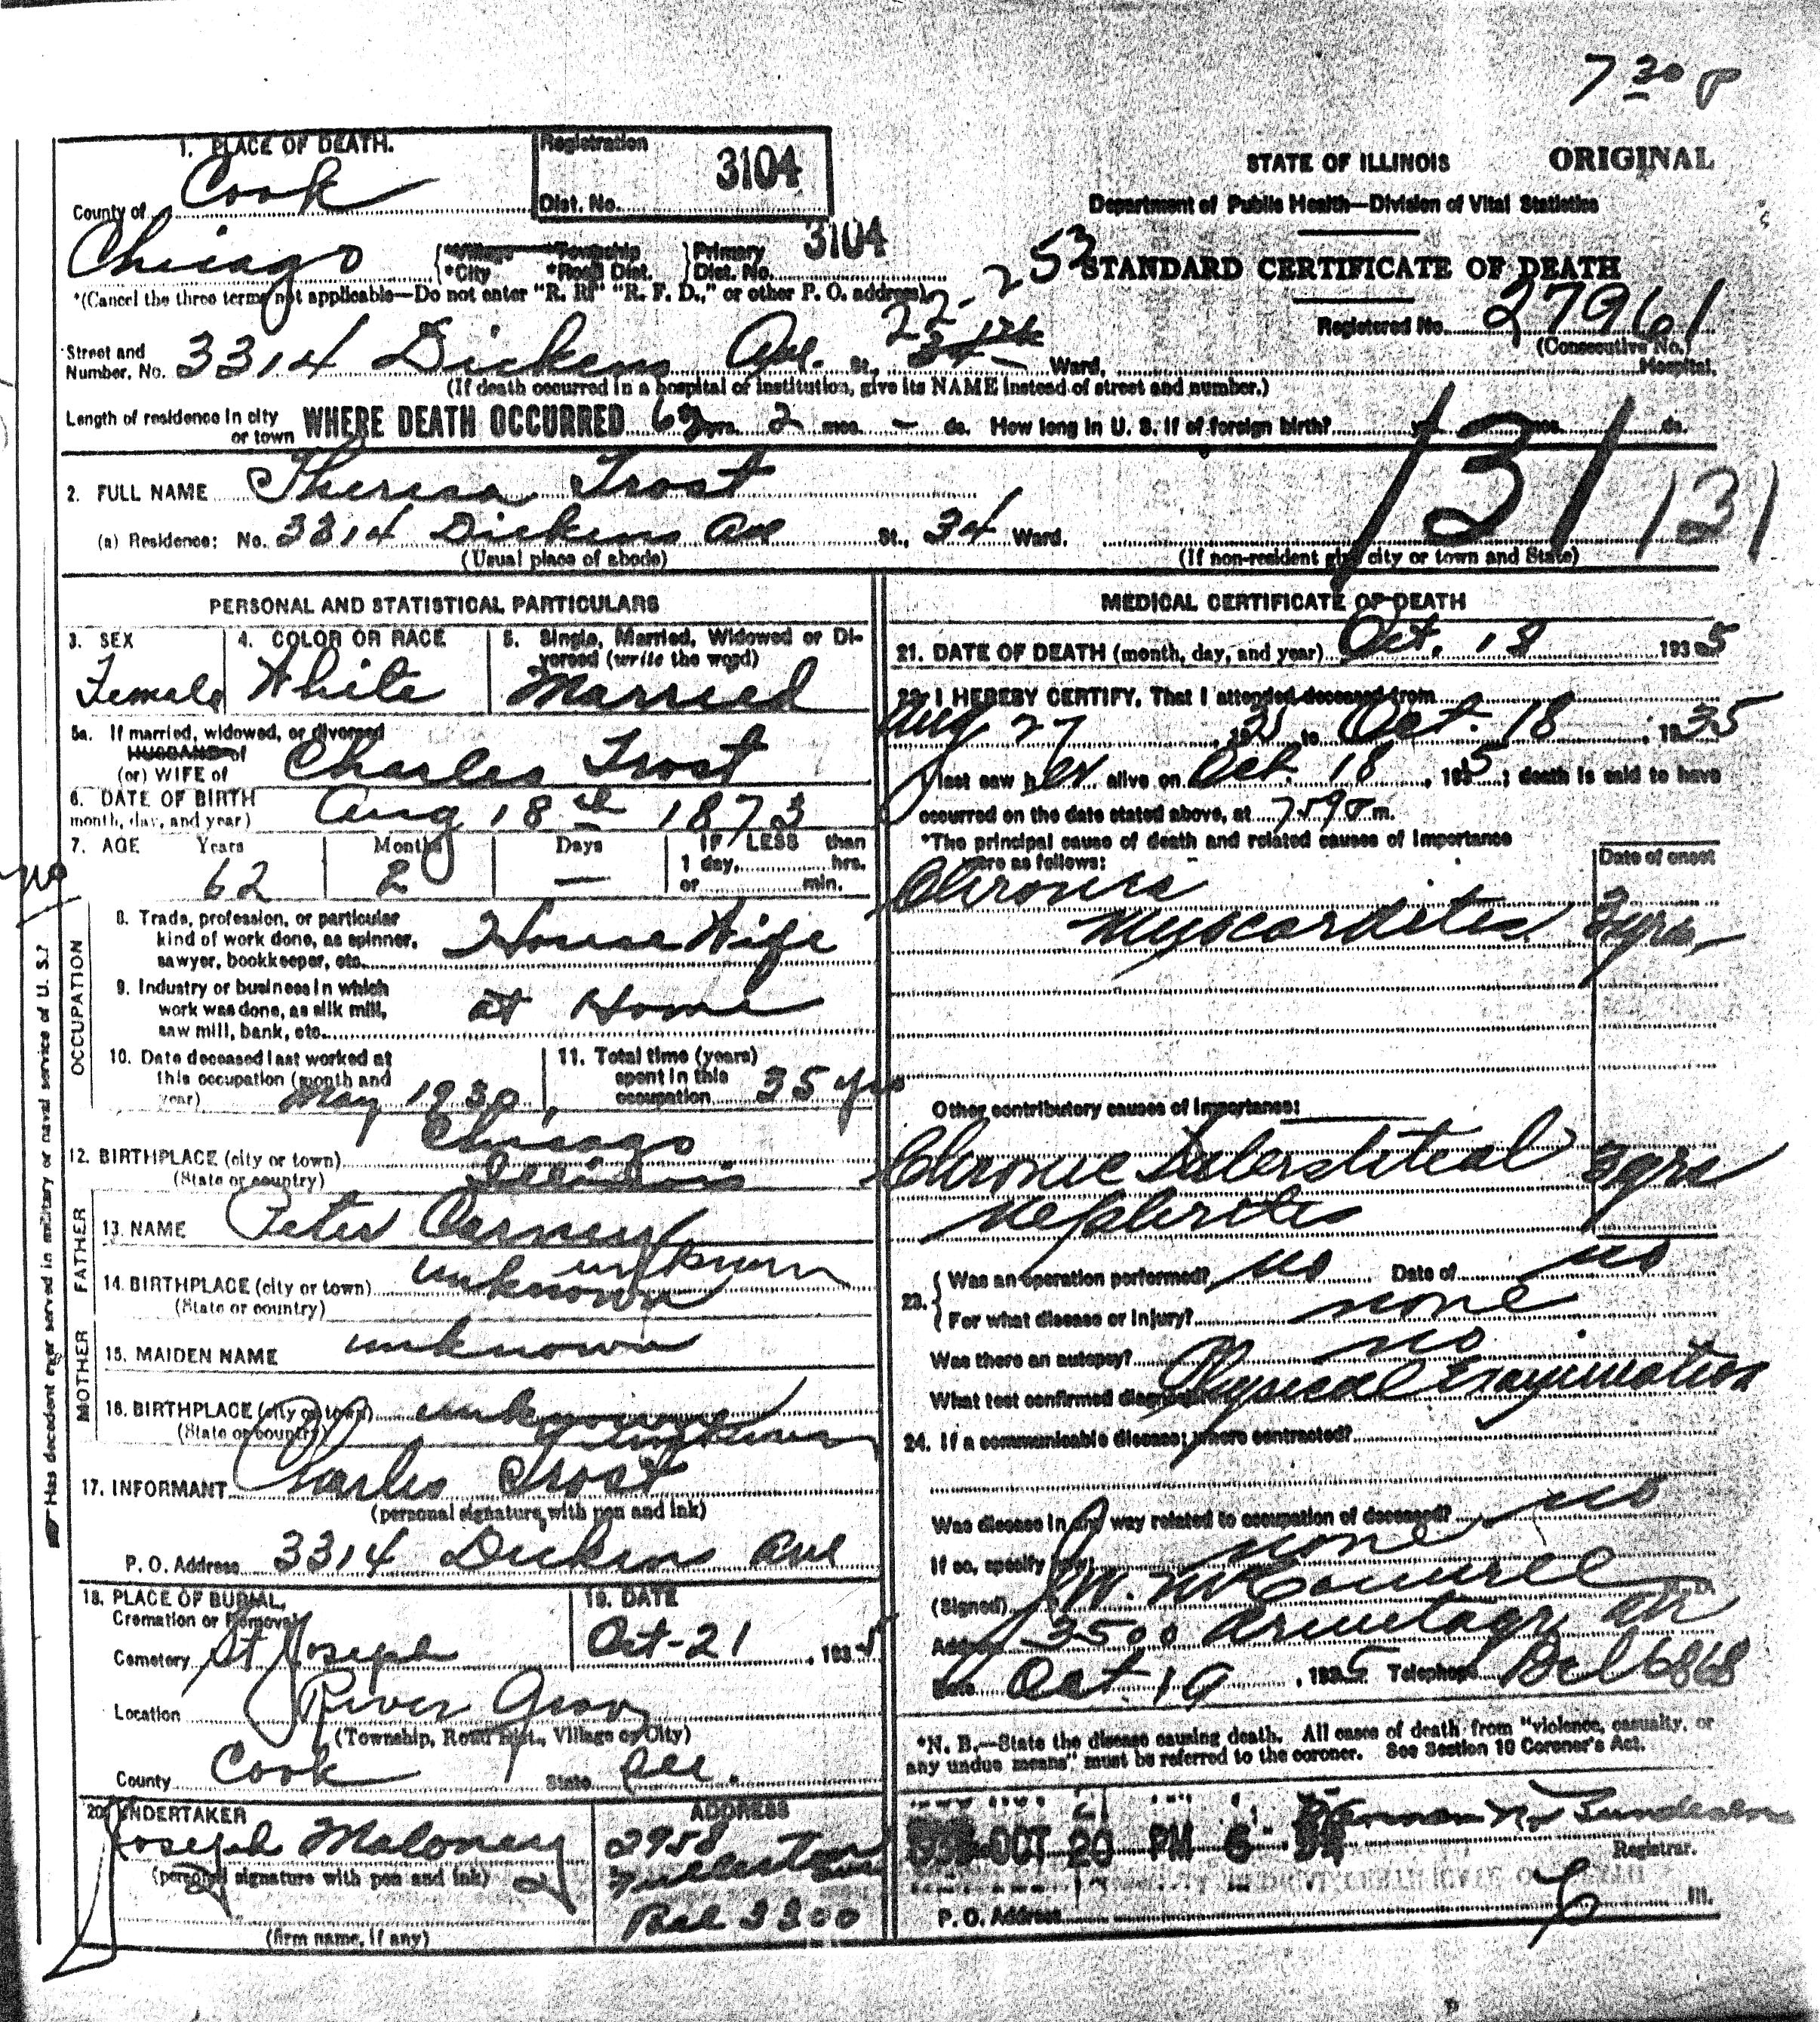 7 30 P
1. PLACE OF DEATH.
Registration
Dist. No. 3104
STATE OF ILLINOIS
ORIGINAL
County of Cook
Department of Public Health—Division of Vital Statistics
Chicago
*Village *Township
*City *Road Dist.
Primary
Dist. No. 3104
22-253
STANDARD CERTIFICATE OF DEATH
*(Cancel the three terms not applicable—Do not enter "R. R." "R. F. D.," or other P. O. address).
Registered No. 27961
(Consecutive No.)
Street and
Number, No. 3314 Dickens Ave. St., Ward, Hospital.
(If death occurred in a hospital or institution, give its NAME instead of street and number.)
Length of residence in city
or town WHERE DEATH OCCURRED 62 yrs. 2 mos. - ds. How long in U. S. if of foreign birth? yrs. mos. ds.
131
131
2. FULL NAME Theresa Trost
(a) Residence: No. 3314 Dickens Ave St., 34 Ward.
(Usual place of abode)
(If non-resident give city or town and State)
PERSONAL AND STATISTICAL PARTICULARS
3. SEX
Female
4. COLOR OR RACE
White
5. Single, Married, Widowed or Di-
vorced (write the word)
Married
5a. If married, widowed, or divorced
HUSBAND of
(or) WIFE of Charles Trost
6. DATE OF BIRTH
month, day, and year) Aug 18th 1873
7. AGE Years Months Days IF LESS than
1 day, hrs.
or min.
62 2 —
no
Has decedent ever served in military or naval service of U. S.?
OCCUPATION
8. Trade, profession, or particular
kind of work done, as spinner,
sawyer, bookkeeper, etc. House Wife
9. Industry or business in which
work was done, as silk mill,
saw mill, bank, etc. at Home
10. Date deceased last worked at
this occupation (month and
year) May 1930
11. Total time (years)
spent in this
occupation 35 yrs
12. BIRTHPLACE (city or town) Chicago
(State or country) Illinois
FATHER
13. NAME Peter Carney
14. BIRTHPLACE (city or town) unknown
(State or country) unknown
MOTHER
15. MAIDEN NAME unknown
16. BIRTHPLACE (city or town) unknown
(State or country) unknown
17. INFORMANT Charles Trost
(personal signature with pen and ink)
P. O. Address 3314 Dickens Ave
18. PLACE OF BURIAL,
Cremation or Removal
Cemetery St Joseph
19. DATE
Oct-21, 1935
Location River Grov
(Township, Road Dist., Village or City)
County Cook State Ill.
20. UNDERTAKER
Joseph Maloney
(personal signature with pen and ink)
(firm name, if any)
ADDRESS
2958
3300
MEDICAL CERTIFICATE OF DEATH
21. DATE OF DEATH (month, day, and year) Oct. 18 1935
22. I HEREBY CERTIFY, That I attended deceased from
Aug 27, to Oct. 18, 1935
I last saw her alive on Oct. 18, 1935; death is said to have
occurred on the date stated above, at m.
*The principal cause of death and related causes of importance
were as follows:
Date of onset
Chronic
Myocarditis 3 yrs
Other contributory causes of importance:
Chronic Interstitial 3 yrs
Nephritis
23. Was an operation performed? no Date of no
For what disease or injury? none
Was there an autopsy? no
What test confirmed diagnosis? Physical Examination
24. If a communicable disease; where contracted?
Was disease in any way related to occupation of deceased? no
If so, specify how: none
(Signed) M. D.
Address 3500 Armitage Av
Date Oct. 19, 1935 Telephone Bel 6868
*N. B.—State the disease causing death. All cases of death from "violence, casualty, or
any undue means" must be referred to the coroner. See Section 10 Coroner's Act.
OCT 20 PM
Herman N. Bundesen
Registrar.
P. O. Address Ill.